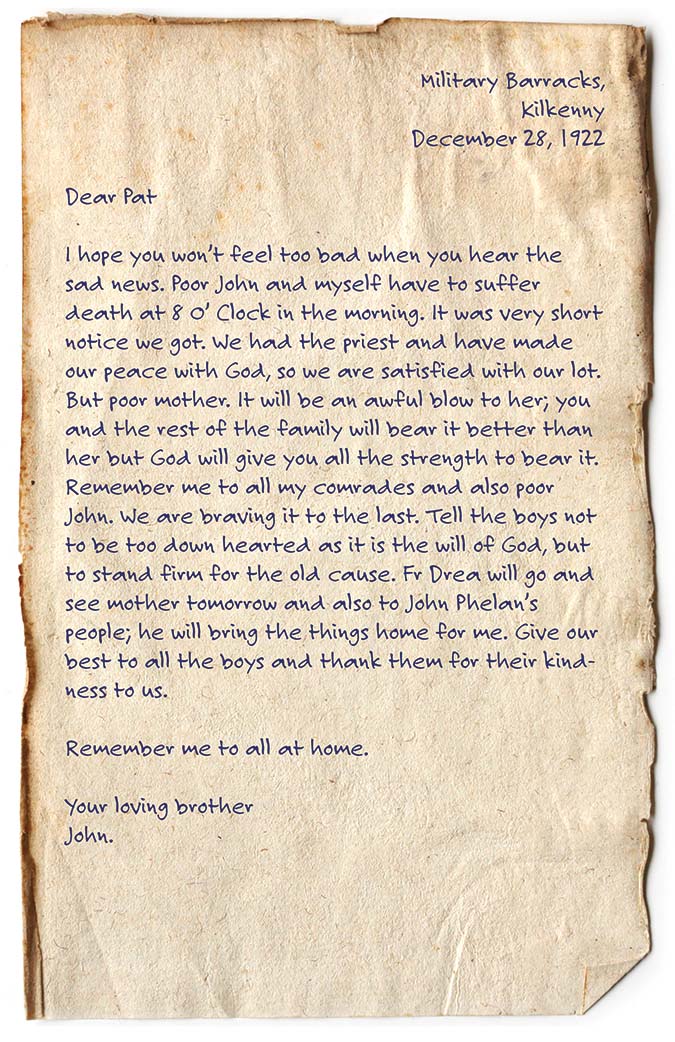 Military Barracks,
Kilkenny
December 28, 1922
Dear Pat
I hope you won't feel too bad when you hear the
sad news. Poor John and myself have to suffer
death at 8 O' Clock in the morning. It was very short
notice we got. We had the priest and have made
our peace with God, so we are satisfied with our lot.
But poor mother. It will be an awful blow to her; you
and the rest of the family will bear it better than
her but God will give you all the strength to bear it.
Remember me to all my comrades and also poor
John. We are braving it to the last. Tell the boys not
to be too down hearted as it is the will of God, but
to stand firm for the old cause. Fr Drea will go and
see mother tomorrow and also to John Phelan's
people; he will bring the things home for me. Give our
best to all the boys and thank them for their kind-
ness to us.
Remember me to all at home.
Your loving brother
John.